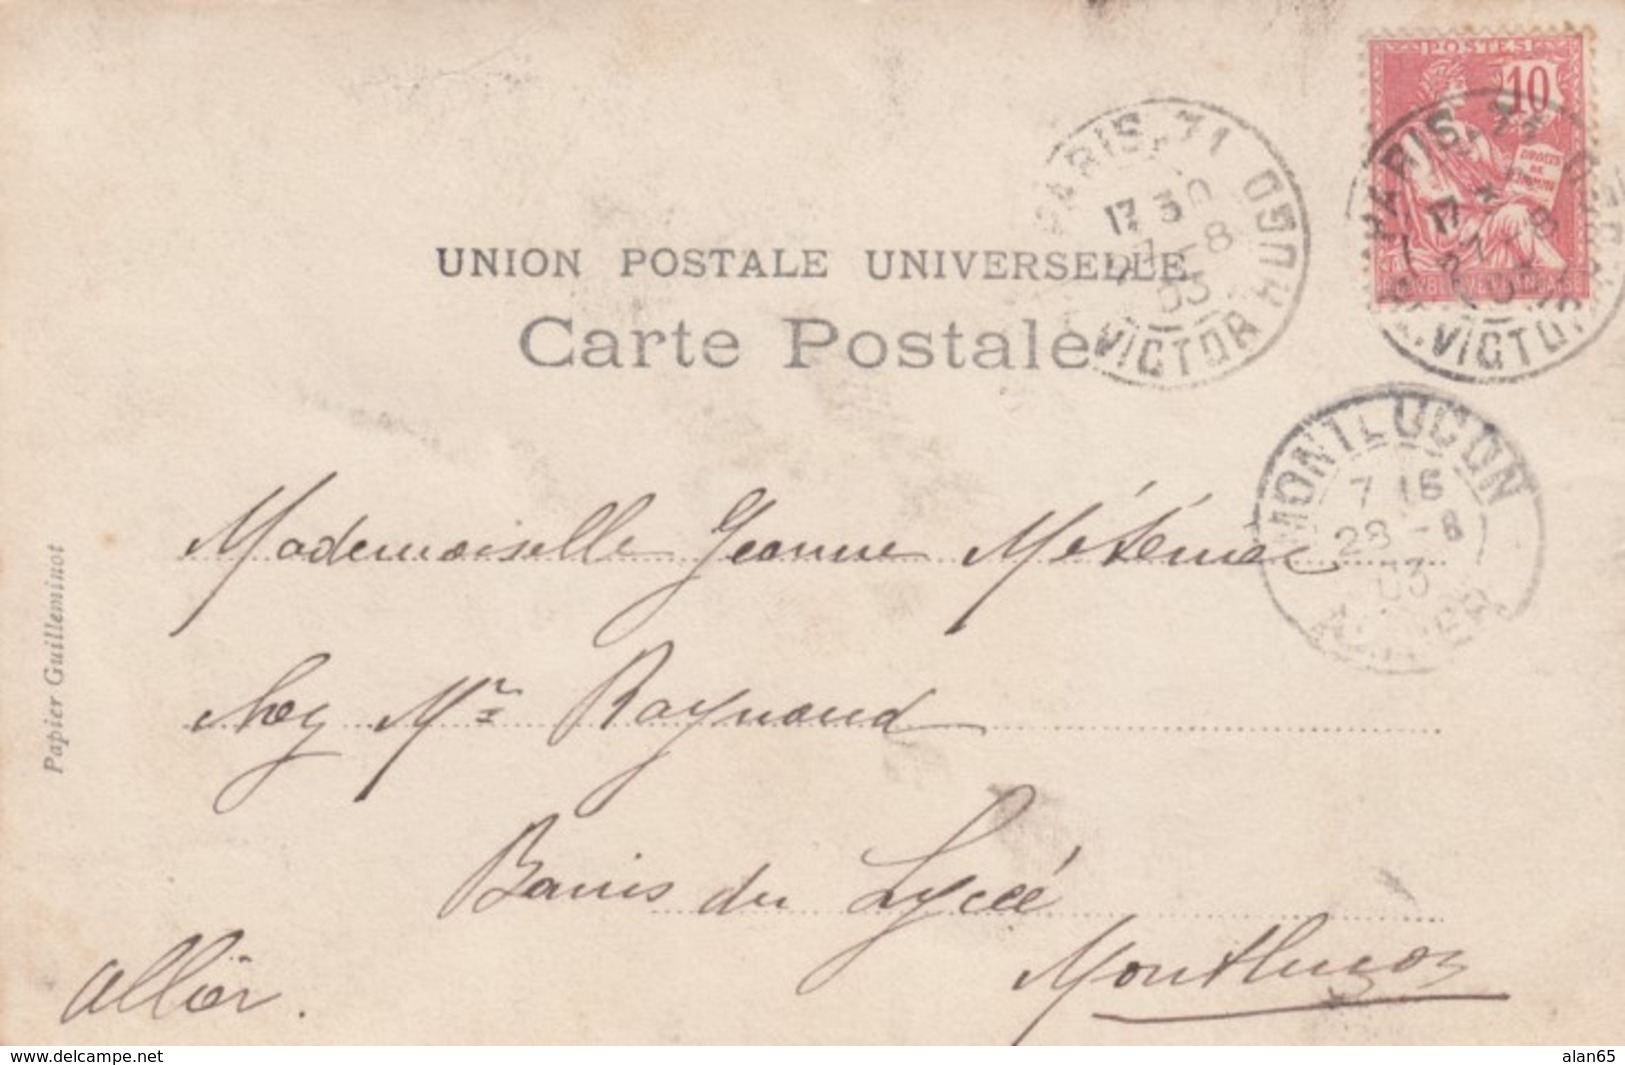 POSTES
10
DROITS DE L'HOMME
PARIS.71
17 30
27-8
03
VICTOR HUGO
PARIS.71
17
27-8
VICTOR
UNION POSTALE UNIVERSELLE
Carte Postale
MONTLUCON
7 15
28-8
03
ALLIER
Mademoiselle Jeanne
chez Mr Raynaud
Bains du Lycée
Montluçon
Allier.
Papier Guilleminot
www.delcampe.net
alan65